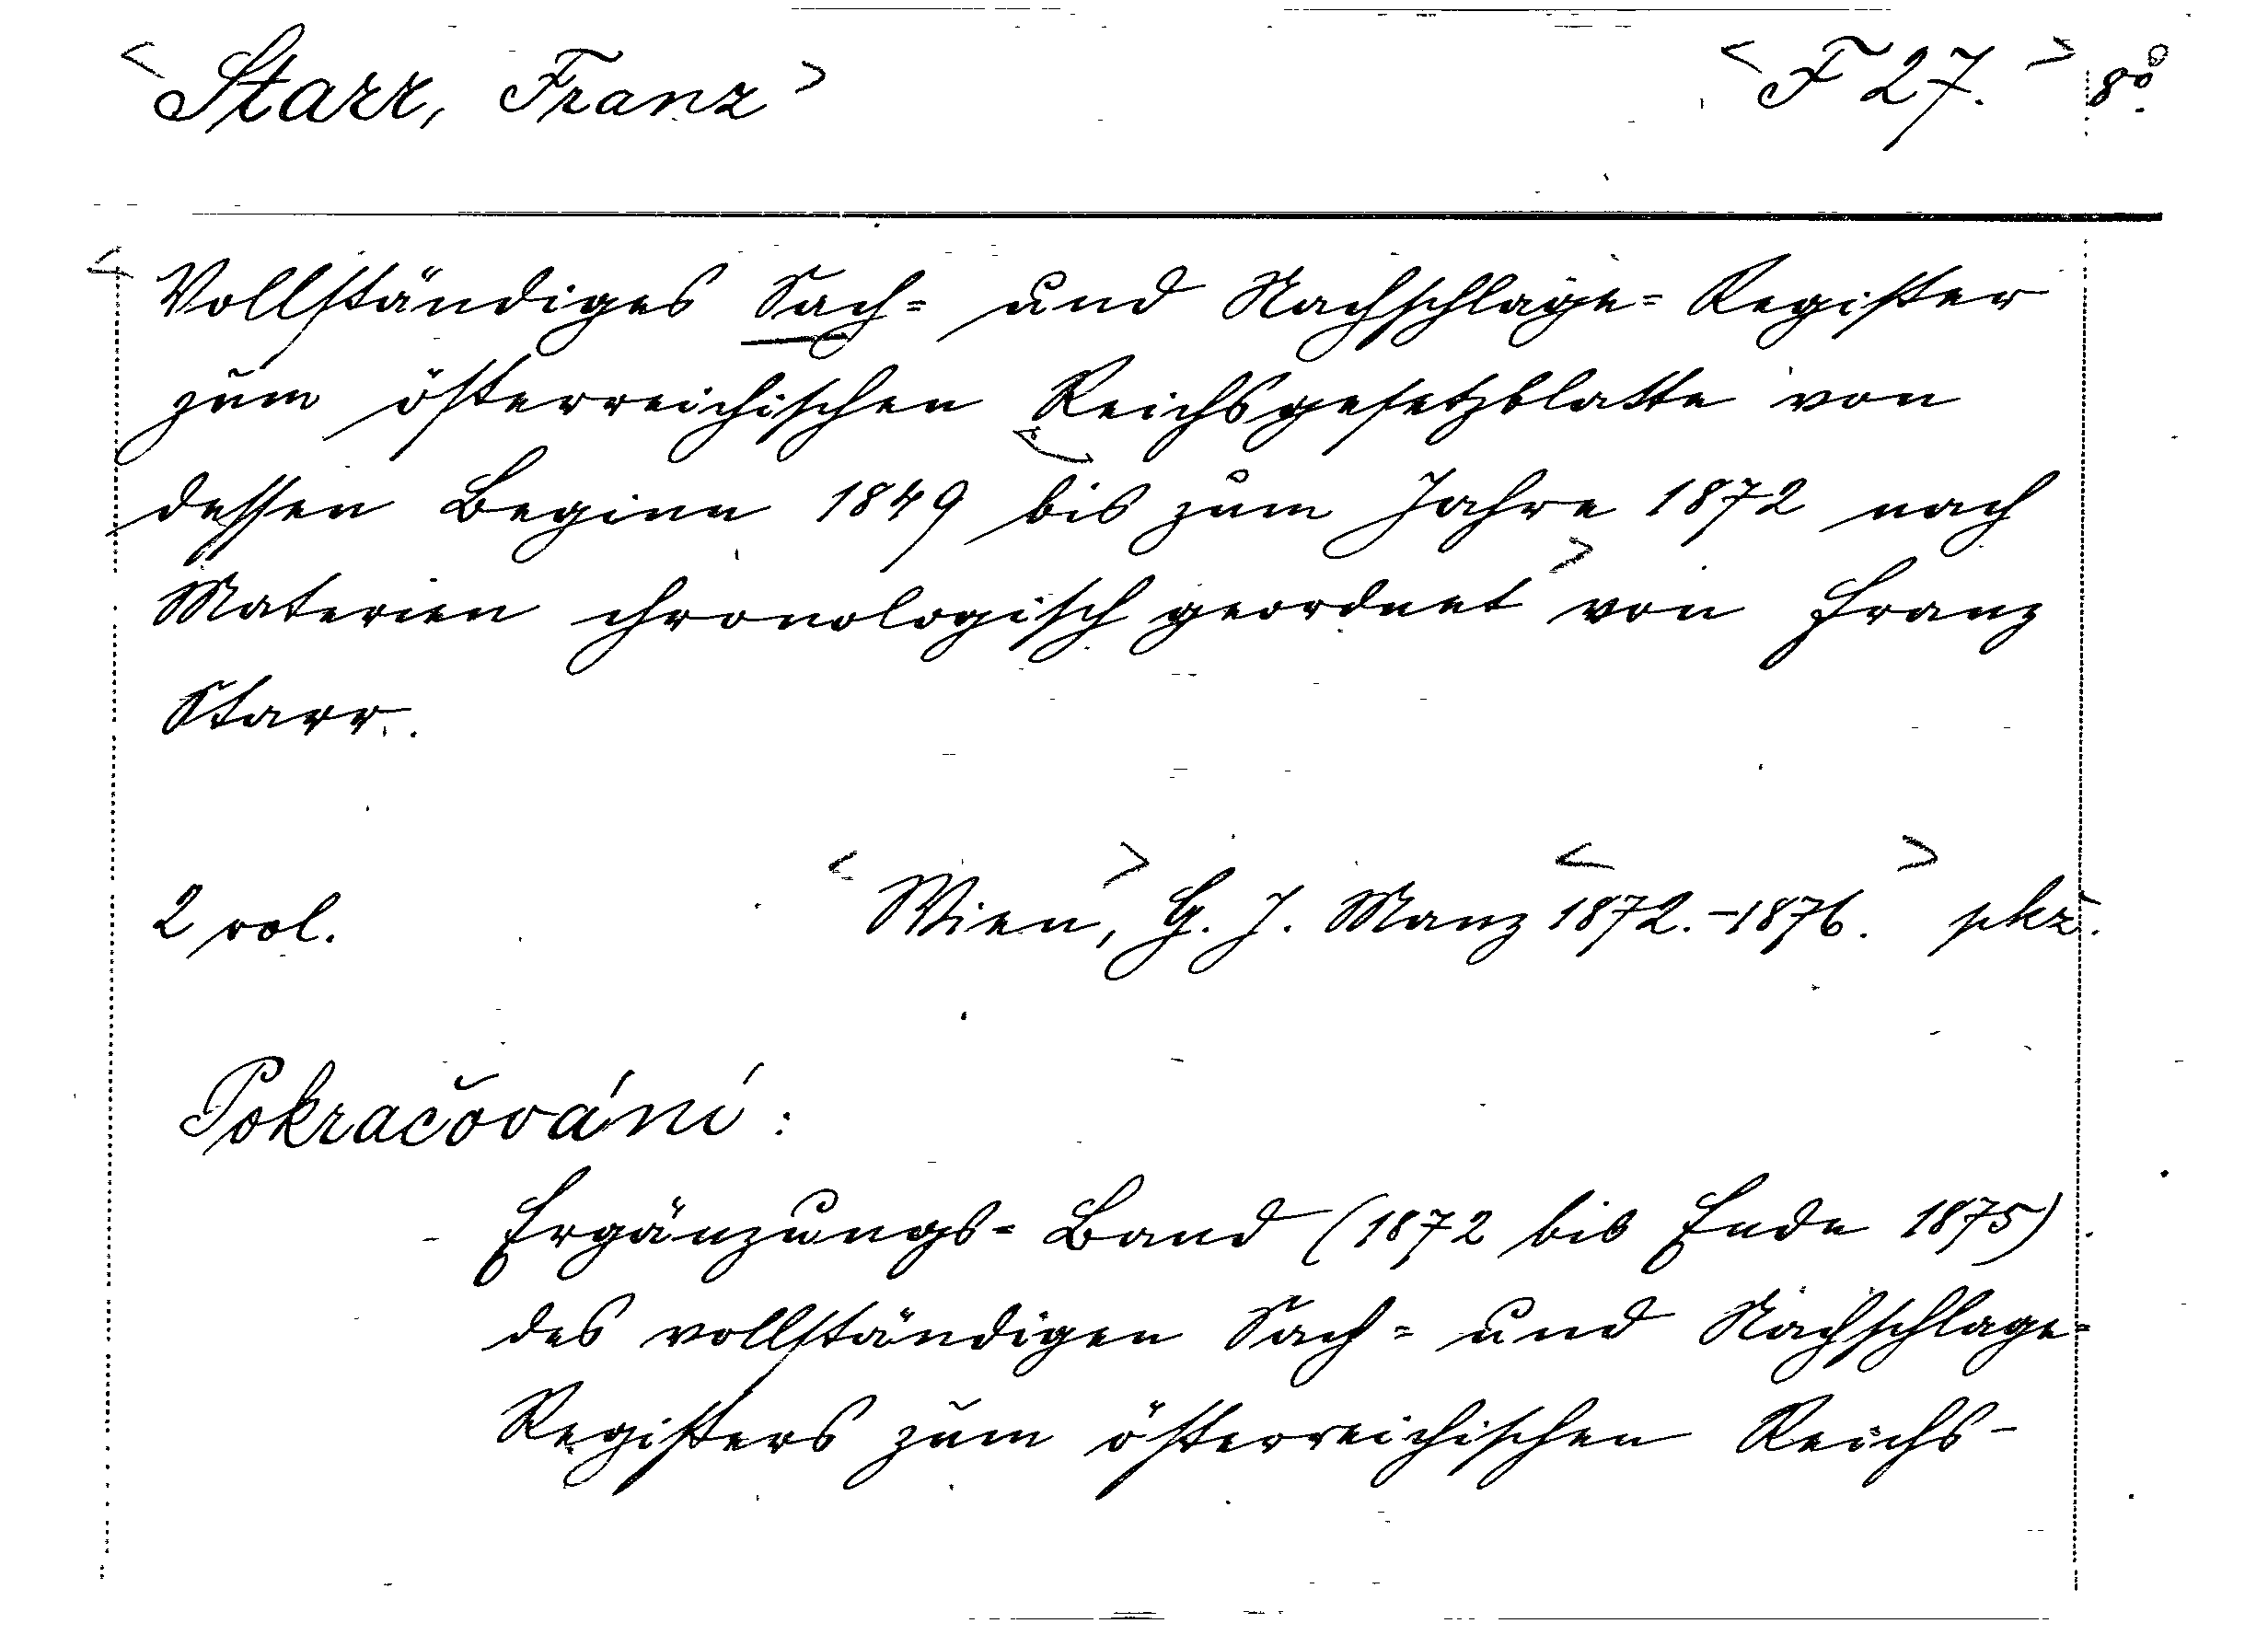 <Starr, Franz> <F 27.> 8°.
<Vollständiges Sach- und Nachschlage-Register
zum österreichischen Reichsgesetzblatte von
dessen Beginn 1849 bis zum Jahre 1872 nach
Materien chronologisch geordnet> von Franz
Starr.
2 vol. <Wien>, G. J. Manz <1872.-1876.> pkž.
Pokračování:
Ergänzungs-Band (1872 bis Ende 1875)
des vollständigen Sach- und Nachschlage-
Registers zum österreichischen Reichs-